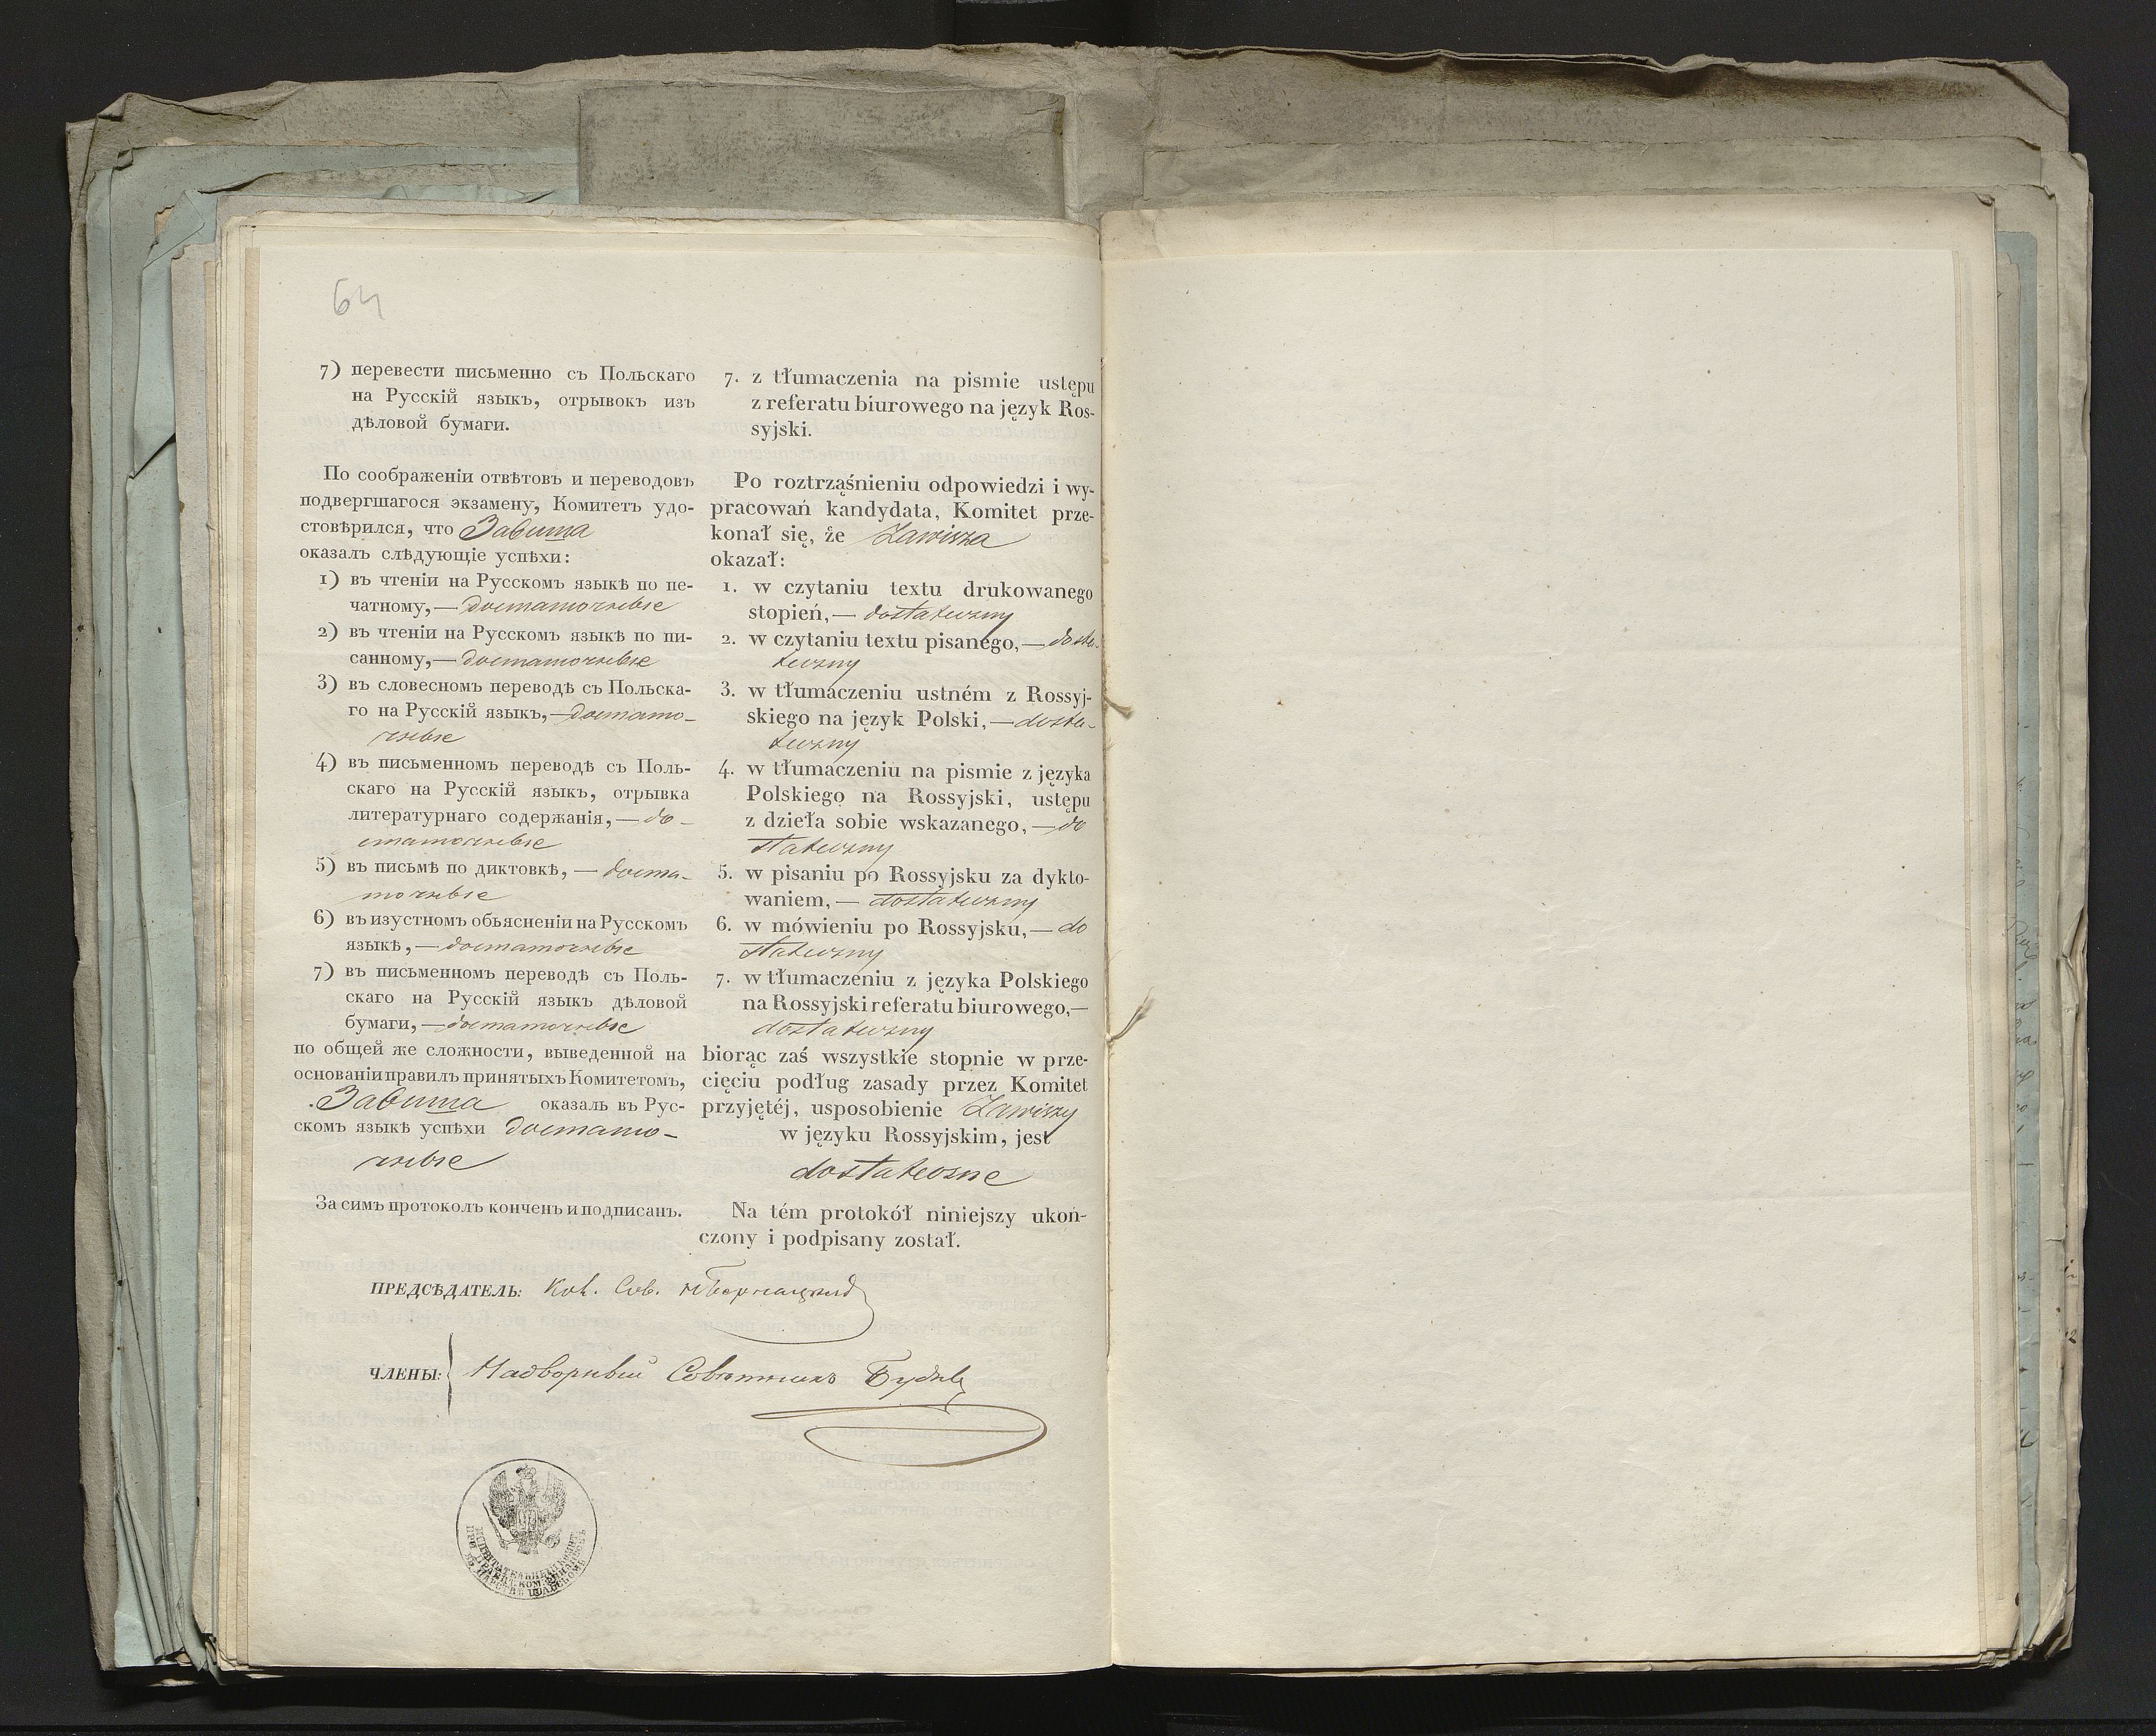 64
7) перевести письменно съ Польскаго
на Русскій языкъ, отрывокъ изъ
дѣловой бумаги.
По соображеніи отвѣтовъ и переводовъ
подвергшагося экзамену, Комитетъ удо-
стовѣрился, что Завиша
оказалъ слѣдующіе успѣхи:
1) въ чтеніи на Русскомъ языкѣ по пе-
чатному, — достаточные
2) въ чтеніи на Русскомъ языкѣ по пи-
санному, — достаточные
3) въ словесномъ переводѣ съ Польска-
го на Русскій языкъ, — достато-
чные
4) въ письменномъ переводѣ съ Поль-
скаго на Русскій языкъ, отрывка
литературнаго содержанія, — до-
статочные
5) въ письмѣ по диктовкѣ, — доста-
точные
6) въ изустномъ обьясненіи на Русскомъ
языкѣ, — достаточные
7) въ письменномъ переводѣ съ Поль-
скаго на Русскій языкъ дѣловой
бумаги, — достаточные
по общей же сложности, выведенной на
основаніи правилъ принятыхъ Комитетомъ,
Завиша оказалъ въ Рус-
скомъ языкѣ успѣхи достато-
чные
За симъ протоколъ конченъ и подписанъ.
7. z tłumaczenia na pismie ustępu
z referatu biurowego na język Ros-
syjski.
Po roztrząśnieniu odpowiedzi i wy-
pracowań kandydata, Komitet prze-
konał się, że Zawisza
okazał:
1. w czytaniu textu drukowanego
stopień, — dostateczny
2. w czytaniu textu pisanego, — dosta-
teczny
3. w tłumaczeniu ustném z Rossyj-
skiego na język Polski, — dosta-
teczny
4. w tłumaczeniu na pismie z języka
Polskiego na Rossyjski, ustępu
z dzieła sobie wskazanego, — do
stateczny
5. w pisaniu po Rossyjsku za dykto-
waniem, — dostateczny
6. w mówieniu po Rossyjsku, — do
stateczny
7. w tłumaczeniu z języka Polskiego
na Rossyjski referatu biurowego, —
dostateczny
biorąc zaś wszystkie stopnie w prze-
cięciu podług zasady przez Komitet
przyjętéj, usposobienie Zawiszy
w języku Rossyjskim, jest
dostateczne
Na tém protokół niniejszy ukoń-
czony i podpisany został.
ПРЕДСѢДАТЕЛЬ: Кол. Сов.
ЧЛЕНЫ: Надворный Совѣтникъ
ИСПЫТАТЕЛЬНЫЙ КОМИТ.
ПРИ ПРАВИТ. КОМ. ФИНАНСОВЪ
ВЪ ЦАРСТВѢ ПОЛЬСКОМЪ